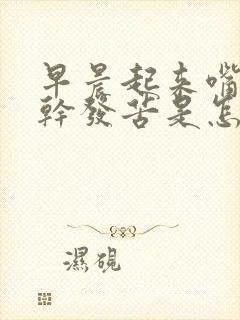 早晨起来嘴
幹發苦是怎
濕硯